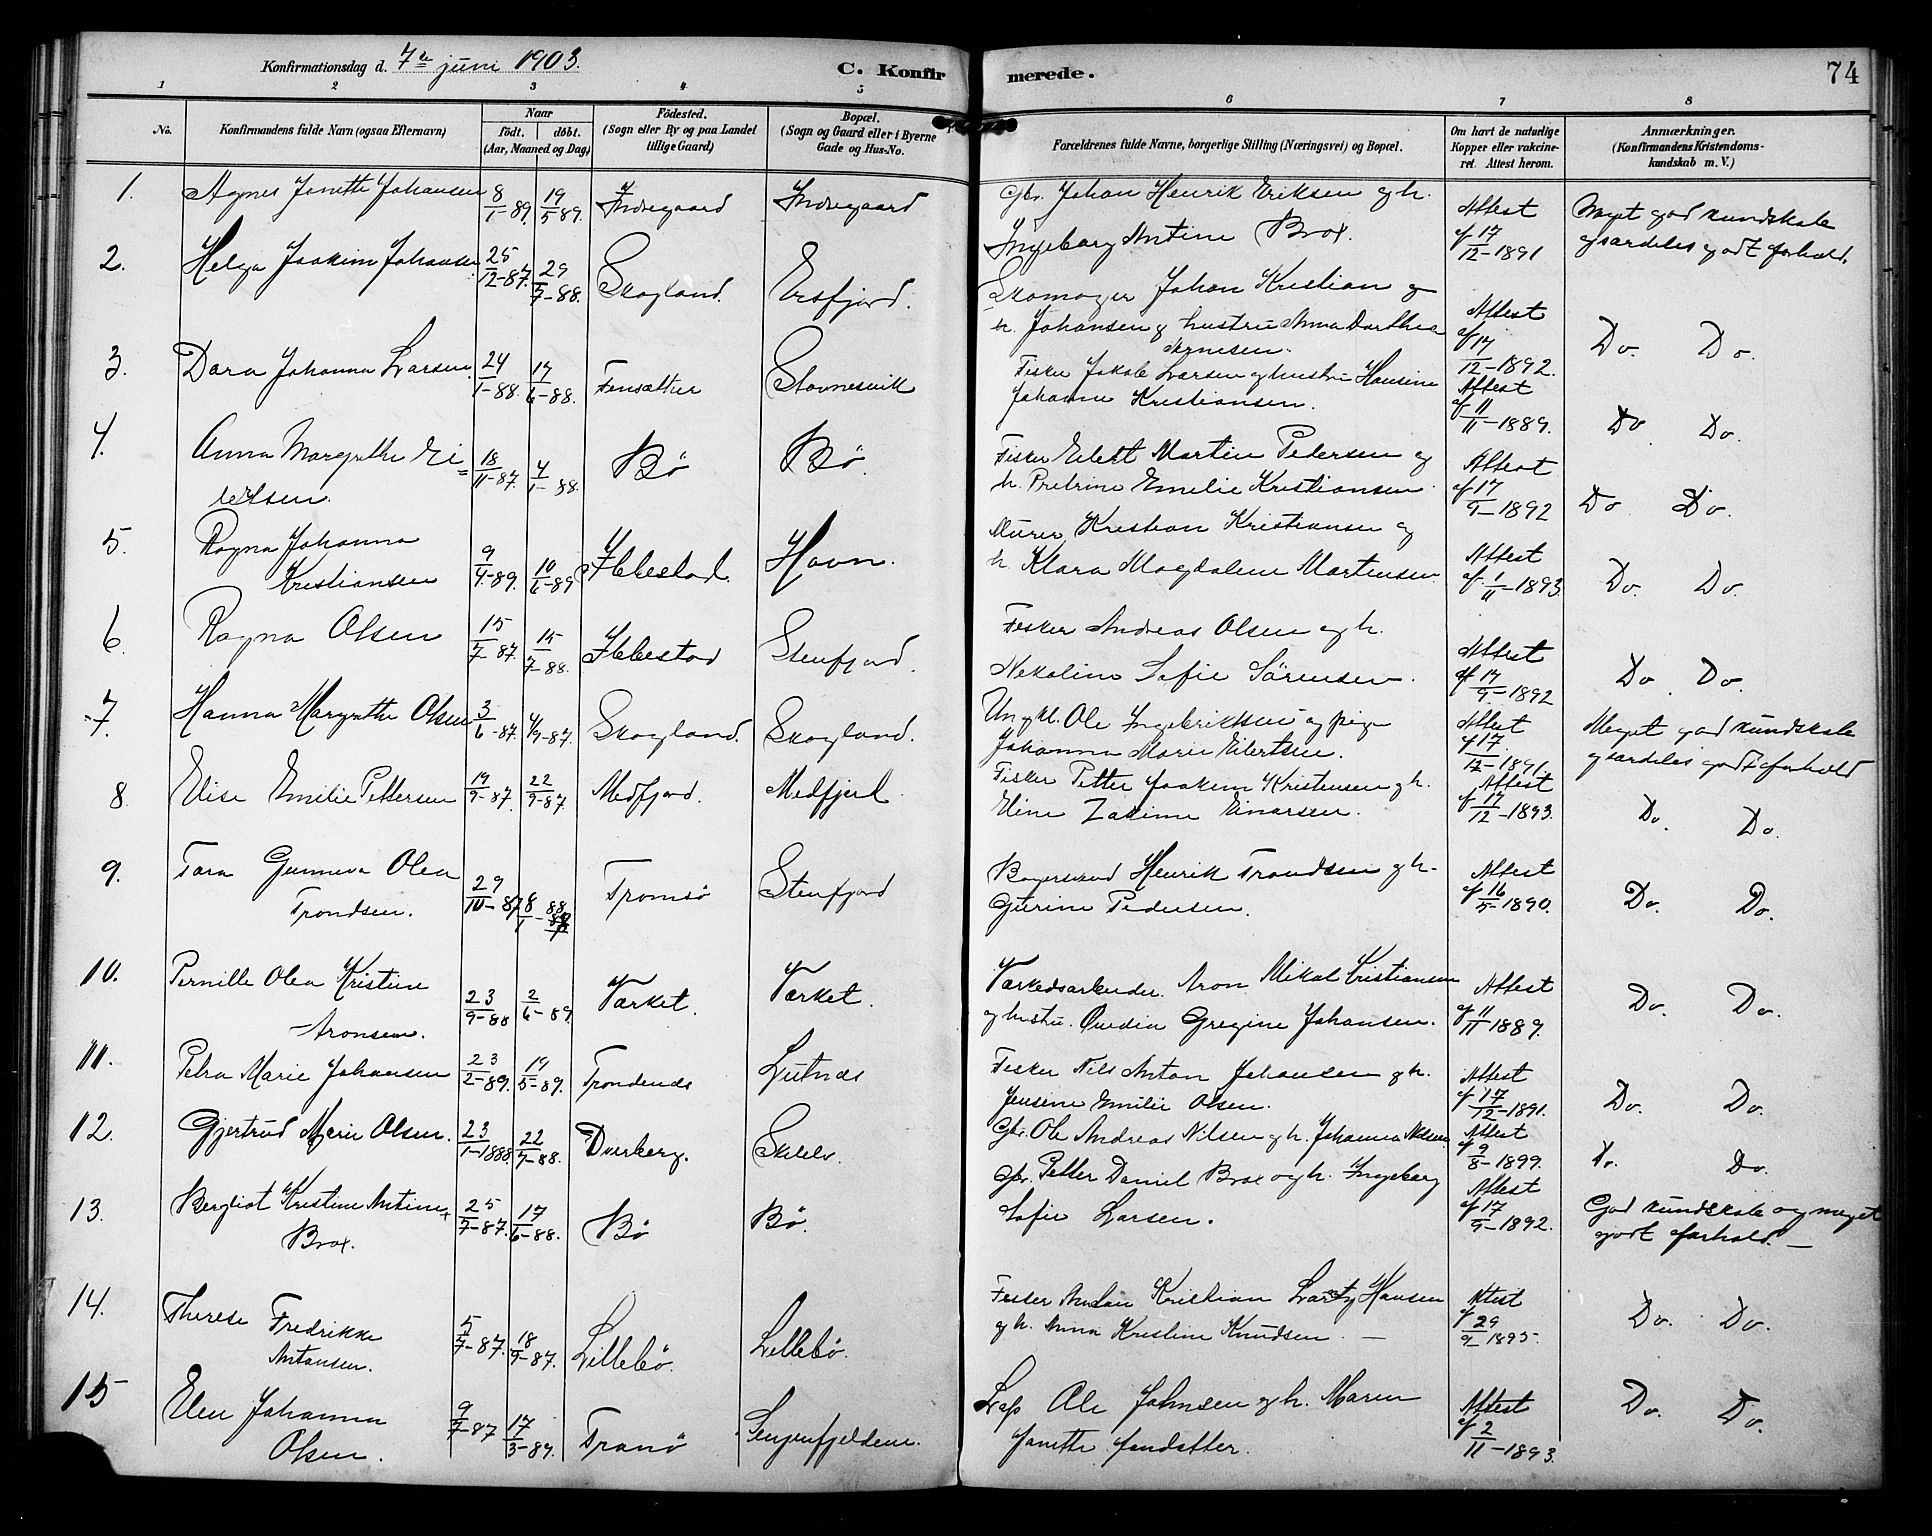 Konfirmationsdag d. 7de juni 1903.
C. Konfirmerede.
74
1 2 3 4 5 6 7 8
No.
Konfirmandens fulde Navn (ogsaa Efternavn)
Naar
födt. döbt.
(Aar, Maaned og Dag)
Födested.
(Sogn eller By og paa Landet
tillige Gaard)
Bopæl.
(Sogn og Gaard eller i Byerne
Gade og Hus-No.
Forældrenes fulde Navne, borgerlige Stilling (Næringsvei) og Bopæl.
Om havt de naturlige
Kopper eller vakcine-
ret. Attest herom.
Anmærkninger.
(Konfirmandens Kristendoms-
kundskab m. V.)
1. Agnes Janette Johansen 8/1-89. 19/5-89. Indregaard Indregaard
Gbr. Johan Henrik Eriksen og h.
Ingeborg Antine Brox.
Attest
af 17/12-1891
Meget god kundskab
og særdeles godt forhold.
2. Helga Joakim Johansen 25/12-87. 29/7-88. Skogland. Ersfjord.
Skomager Johan Kristian og
h. Johansen og hustru Anna Darthea
Attest
af 17/12-1892.
Do. Do.
3. Dara Johanna Larsen 24/1-88. 17/6-88. Finsætter Stavnesvik
Fisker Jakob Larsen og hustru Hansine
Johanne Kristiansen.
Attest
af 11/11-1889.
Do Do.
4. Anna Margrethe Ei=
lertsen. 18/11-87. 4/1-88. Bö Bö.
Fisker Eilert Martin Pedersen og
h. Petrine Emelie Kristiansen
Attest
af 17/9-1892
Do Do.
5. Ragna Johanna
Kristiansen 9/4-89. 10/6-89 Ibbestad. Havn.
Murer Kristian Kristiansen og
h. Klara Magdalene Martensen
Attest
af 1/11-1893.
Do. Do.
6. Ragna Olsen 15/7-87. 15/7-88. Ibbestad Stenfjord.
Fisker Andreas Olsen og h.
Nekoline Sofie Sörensen.
Attest
af 17/9-1892
Do. Do.
7. Hanna Margrethe Olsen 3/6-87. 4/9-87. Skogland. Skogland.
Ungkl. Ole Ingebriktsen og pige
Johanna Marie Eilertsen.
Attest
af 17/12-1891.
Meget god kundskab
og særdeles godt forhold
8. Elise Emilie Pettersen 19/9-87. 22/9-87. Medfjord. Medfjord.
Fisker Petter Joakim Kristensen og h.
Eline Zakine Einarsen.
Attest
af 17/12-1893.
Do. Do.
9. Tara Gunneva Olea
Trondsen. 29/10-87 8/1-88 Tromsö Stenfjord
Henrik Trondsen og h.
Gurine Pedersen.
Attest
af 16/5-1890.
Do. Do.
10. Pernille Olea Kristine
Aronsen. 23/9-88 2/6-89. Værket. Værket.
Værkedsarbeider. Aron Mikal Cristiansen
og hustru. Ovedia Gregine Johansen.
Attest
af 11/11 1889.
Do. Do.
11. Petra Marie Johansen 23/2-89. 19/5-89. Trondenæs Lutnæs
Fisker Nils Anton Johansen og h.
Jensine Emilie Olsen.
Attest
af 17/12-1891.
Do. Do.
12. Gjertrud Marie Olsen. 23/1-1888. 22/7-88. Dverberg.
Gbr. Ole Andreas Nilsen og h. Johanna Nilsen
Attest
af 9/8-1899.
Do. Do.
13. Bergliot Kristine Antine
Brox. 25/7-87. 17/6-88. Bö Bö.
Gbr. Petter Daniel Brox og h. Ingeborg
Sofie Larsen.
Attest
af 17/9-1892.
God kundskab og meget
godt forhold.
14. Therese Fredrikke
Antonsen. 5/7-87. 18/9-87. Lillebö. Lillebö.
Fisker Anton Kristian Hansen
og h. Anna Kristine Knudsen.
Attest
af 29/9-1895.
Do. Do.
15 Elen Johanna
Olsen. 9/7-87 17/3-89. Tranö Senjenfjeldene.
Lap Ole Johnsen og h. Maren
Janette
Attest
af 2/11-1893.
Do. Do.